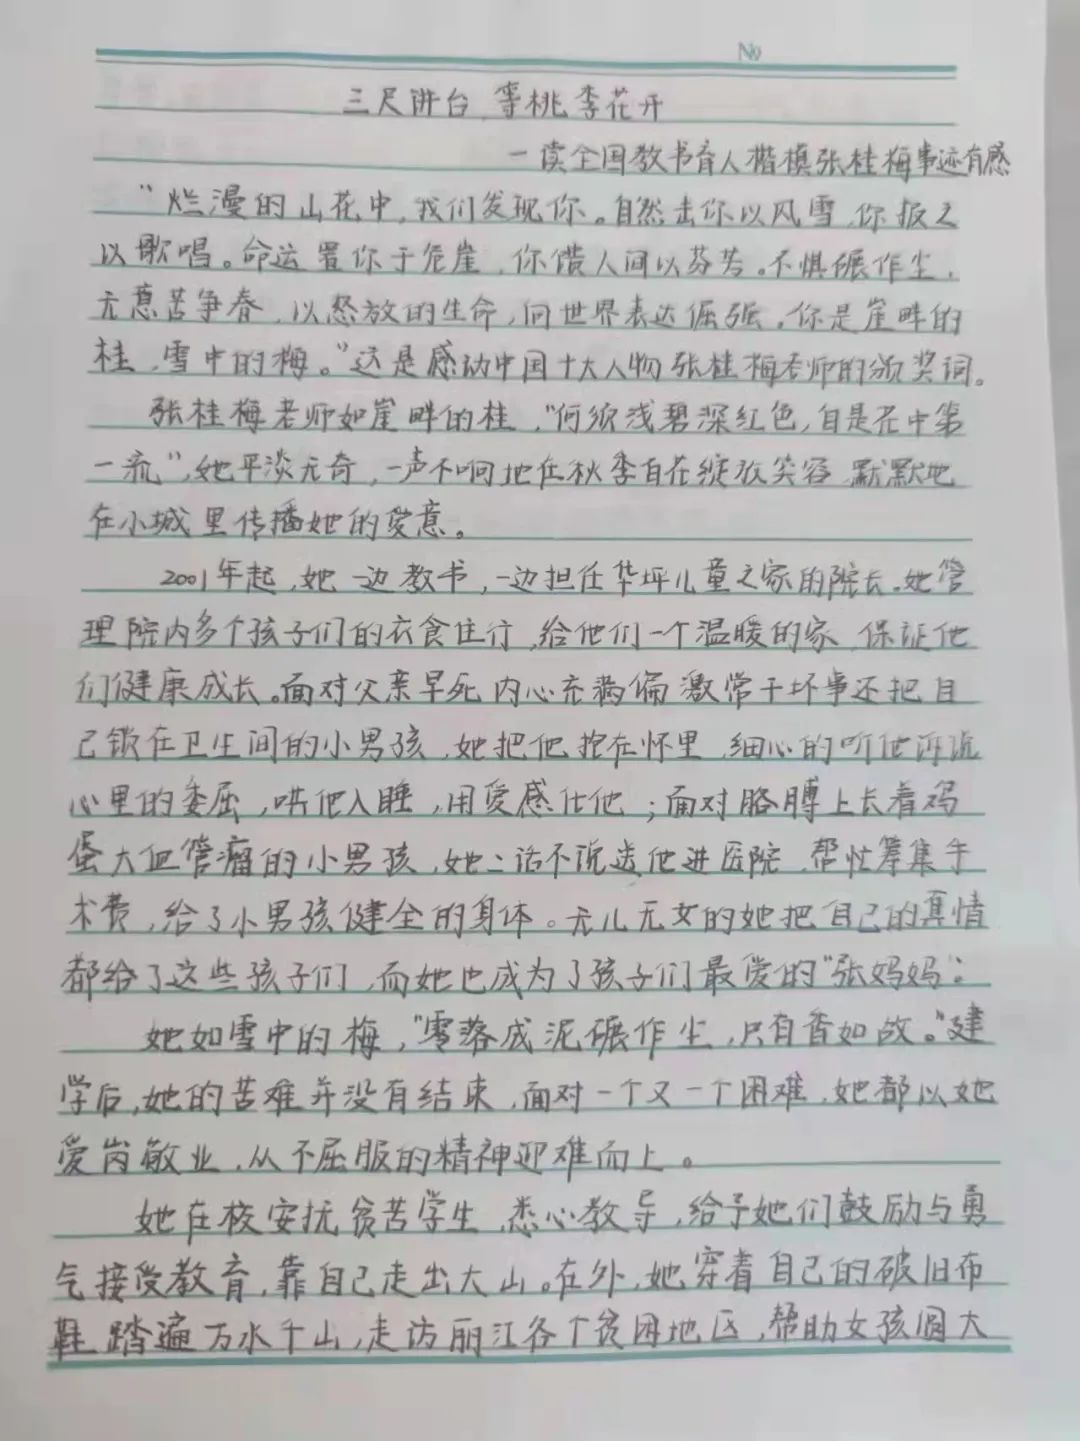 No
三尺讲台,等桃李花开
一读全国教书育人楷模张桂梅事迹有感
“烂漫的山花中,我们发现你。自然击你以风雪,你报之
以歌唱。命运置你于危崖,你馈人间以芬芳。不惧碾作尘,
无意苦争春,以怒放的生命,向世界表达倔强。你是崖畔的
桂,雪中的梅。”这是感动中国十大人物张桂梅老师的颁奖词。
张桂梅老师如崖畔的桂,“何须浅碧深红色,自是花中第
一流”,她平淡无奇,一声不响地在秋季自花绽放笑容,默默地
在小城里传播她的爱意。
2001年起,她一边教书,一边担任华坪儿童之家的院长。她管
理院内多个孩子们的衣食住行,给他们一个温暖的家,保证他
们健康成长。面对父亲早死内心充满偏激常干坏事还把自
己锁在卫生间的小男孩,她把他抱在怀里,细心的听他诉说
心里的委屈,哄他入睡,用爱感化他;面对胳膊上长着鸡
蛋大血管瘤的小男孩,她二话不说送他进医院,帮忙筹集手
术费,给了小男孩健全的身体。无儿无女的她把自己的真情
都给了这些孩子们,而她也成为了孩子们最爱的“张妈妈”。
她如雪中的梅,“零落成泥碾作尘,只有香如故。”建
学后,她的苦难并没有结束,面对一个又一个困难,她都以她
爱岗敬业,从不屈服的精神迎难而上。
她在校安抚贫苦学生,悉心教导,给予她们鼓励与勇
气接受教育,靠自己走出大山。在外,她穿着自己的破旧布
鞋,踏遍万水千山,走访丽江各个贫困地区,帮助女孩圆大